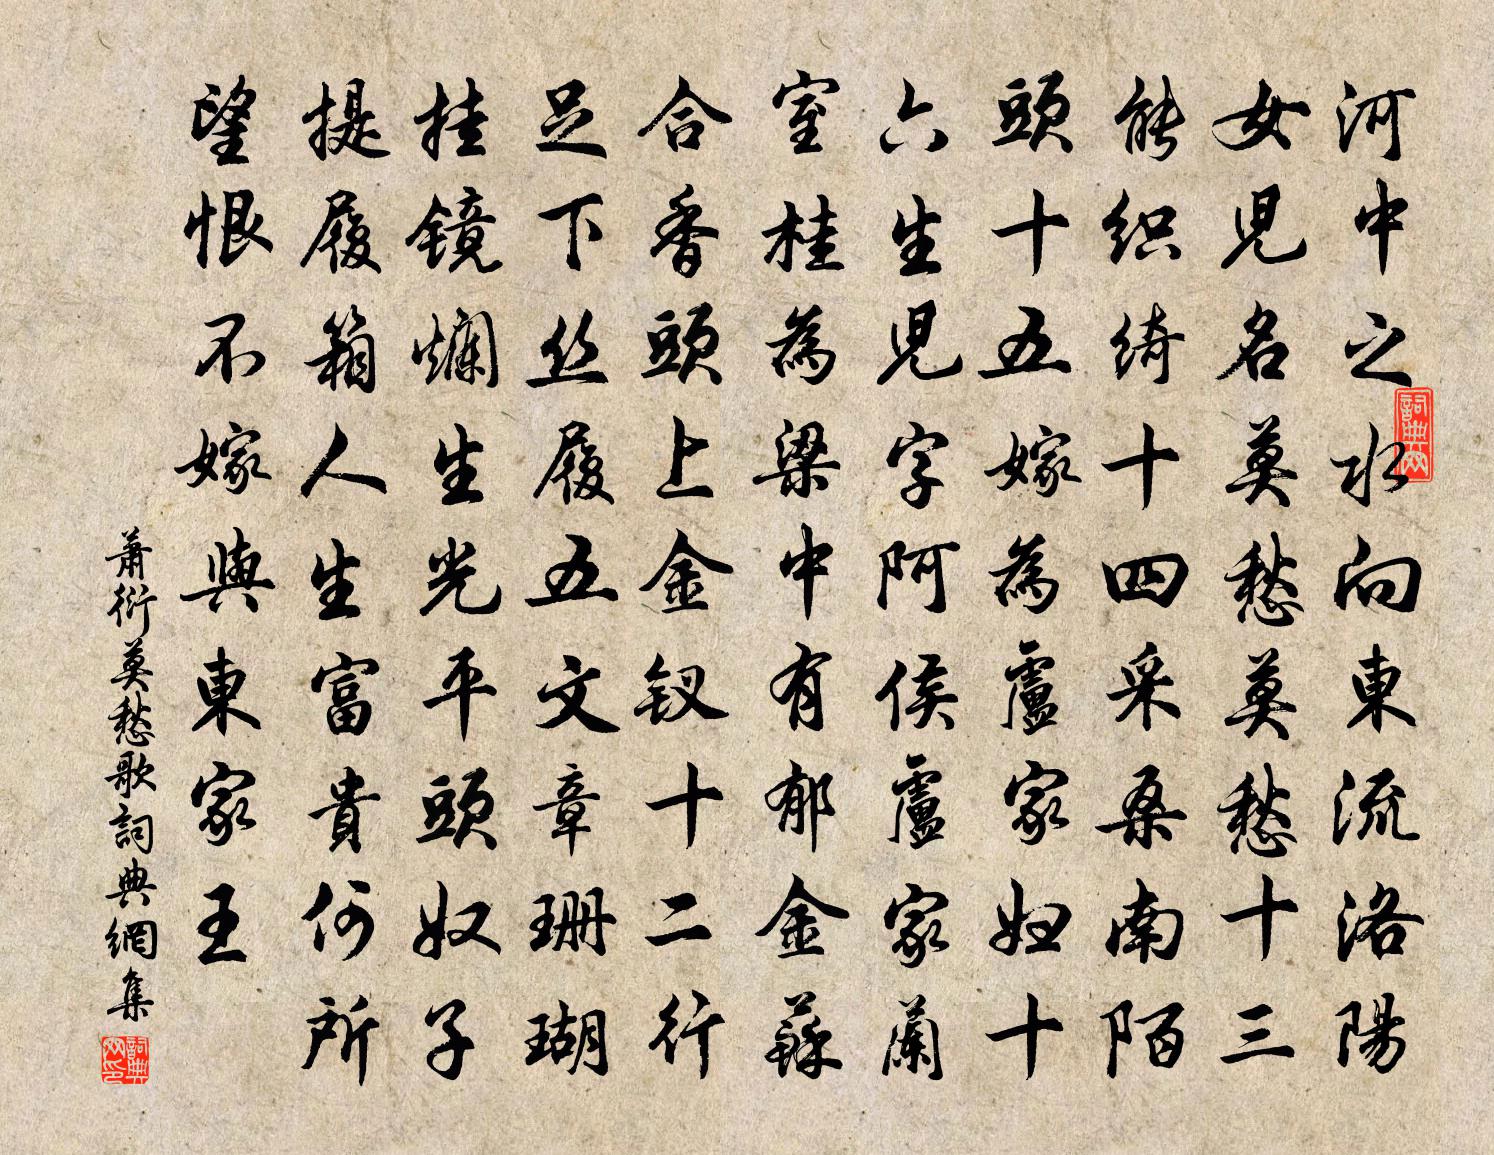 河中之水向東流洛陽
女児名莫愁莫愁十三
能织绮十四采桑南陌
頭十五嫁為盧家妇十
六生児字阿侯盧家蘭
室桂為梁中有郁金蘇
合香頭上金钗十二行
足下丝履五文章珊瑚
挂镜爛生光平頭奴子
提履箱人生富貴何所
望恨不嫁與東家王
蕭衍莫愁歌詞典網集
詞典网
詞典网印